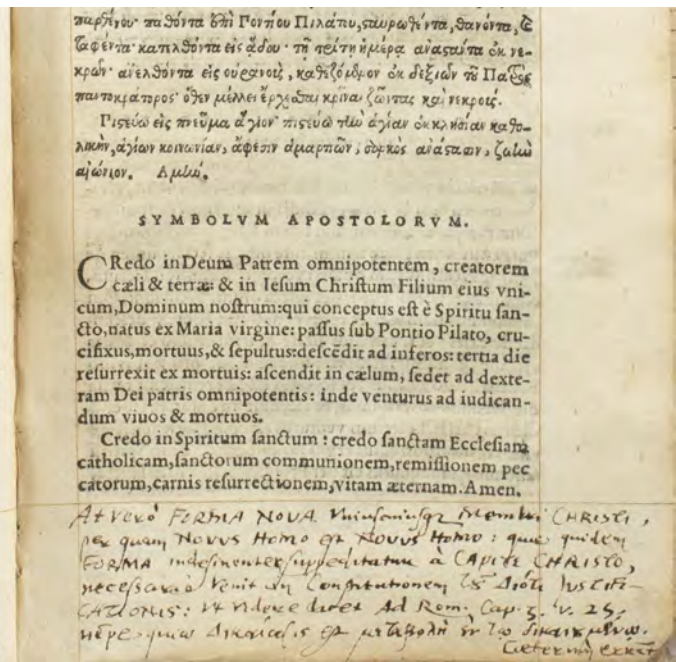 παρθένου· παθόντα ἐπὶ Ποντίου Πιλάτου, σαυρωθέντα, θανόντα, &
ταφέντα· κατελθόντα εἰς ᾅδου· τῇ τρίτῃ ἡμέρᾳ ἀναστάντα ἐκ νε-
κρῶν· ἀνελθόντα εἰς οὐρανοὺς, καθεζόμενον ἐκ δεξιῶν τοῦ Πατρὸς
παντοκράτορος· ὅθεν μέλλει ἔρχεσθαι κρῖναι ζῶντας καὶ νεκρούς.
Πιστεύω εἰς πνεῦμα ἅγιον· πιστεύω τὴν ἁγίαν ἐκκλησίαν καθο-
λικὴν, ἁγίων κοινωνίαν, ἄφεσιν ἁμαρτιῶν, σαρκὸς ἀνάστασιν, ζωὴν
αἰώνιον. Ἀμήν.
SYMBOLVM APOSTOLORVM.
CRedo in Deum Patrem omnipotentem, creatorem
cæli & terræ: & in Iesum Christum Filium eius vni-
cum, Dominum nostrum: qui conceptus est è Spiritu san-
cto, natus ex Maria virgine: passus sub Pontio Pilato, cru-
cifixus, mortuus, & sepultus: descēdit ad inferos: tertia die
resurrexit ex mortuis: ascendit in cælum, sedet ad dexte-
ram Dei patris omnipotentis: inde venturus ad iudican-
dum viuos & mortuos.
Credo in Spiritum sanctum: credo sanctam Ecclesiam
catholicam, sanctorum communionem, remissionem pec
catorum, carnis resurrectionem, vitam æternam. Amen.
At verò FORMA NOVA Vniuscuiusq; Membri CHRISTI,
per quam NOVVS HOMO est NOVVS HOMO: quæ quidem
FORMA indesinenter suppeditatur à CAPITE CHRISTO,
necessariò venit in Constitutionem JVSTIFI-
CATIONIS: Vt videre licet Ad Rom. Cap. 3. v. 25.
est μεταβολὴ ἐν τῷ